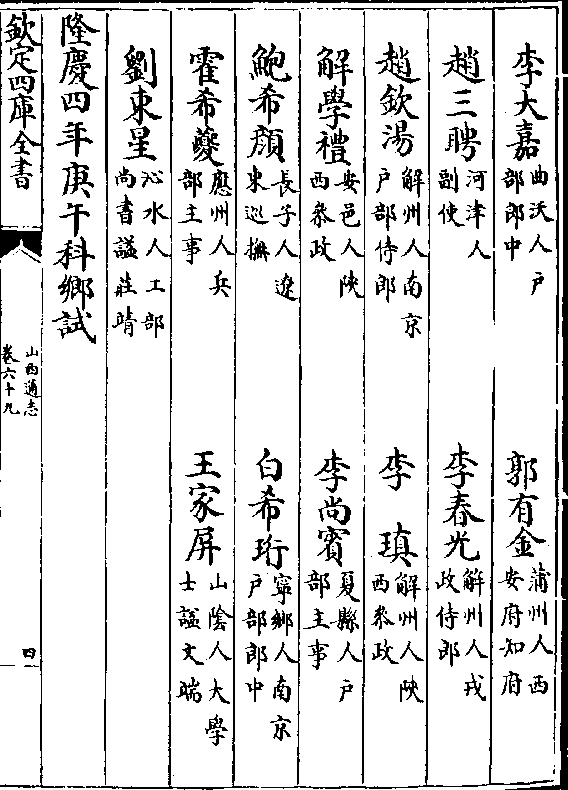 李大嘉 曲沃人户部郎中 郭有金 蒲州人西安府知府
趙三聘 河津人副使 李春光 解州人戎政侍郎
趙欽湯 解州人南京户部侍郎 李瑱 解州人陜西叅政
解學禮 安邑人陜西叅政 李尚賓 夏縣人户部主事
鮑希顔 長子人遼東巡撫 白希珩 寧鄉人南京户部郎中
霍希夔 應州人兵部主事 王家屏 山隂人大學士諡文端
劉東星 沁水人工部尚書諡莊靖
隆慶四年庚午科鄉試
欽定四庫全書 山西通志卷六十九 四